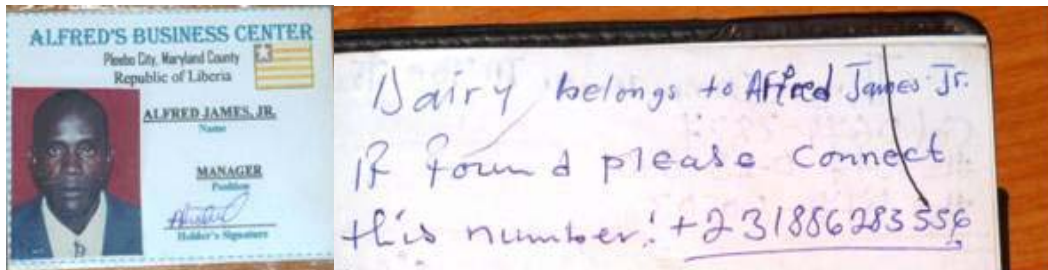 ALFRED'S BUSINESS CENTER
Pleebo City, Maryland County
Republic of Liberia
ALFRED JAMES, JR.
Name
MANAGER
Position
Holder's Signature
Dairy belongs to Alfred James Jr.
IF Found please Connect
this number: +231886283556